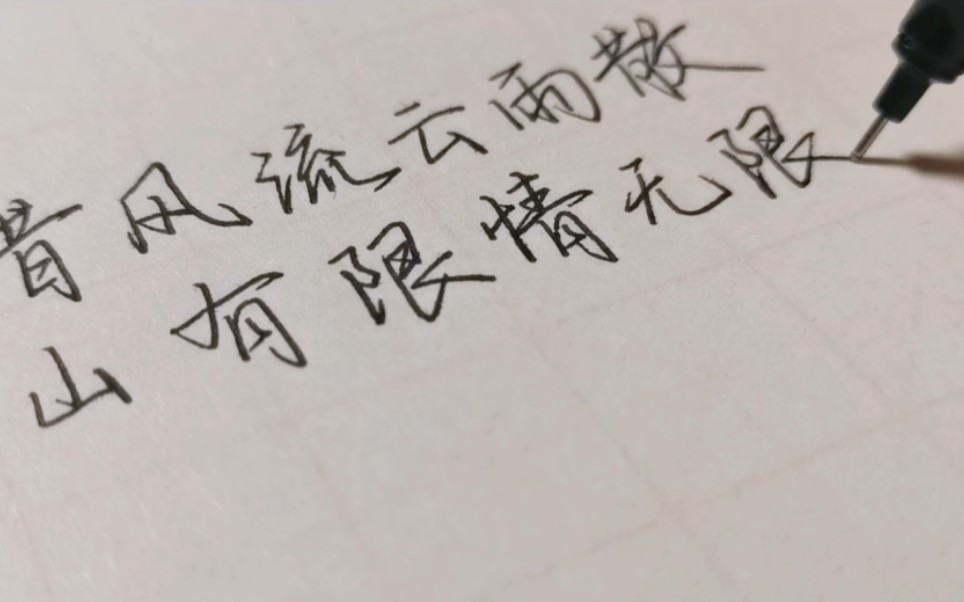 昔风流云雨散
山有限情无限